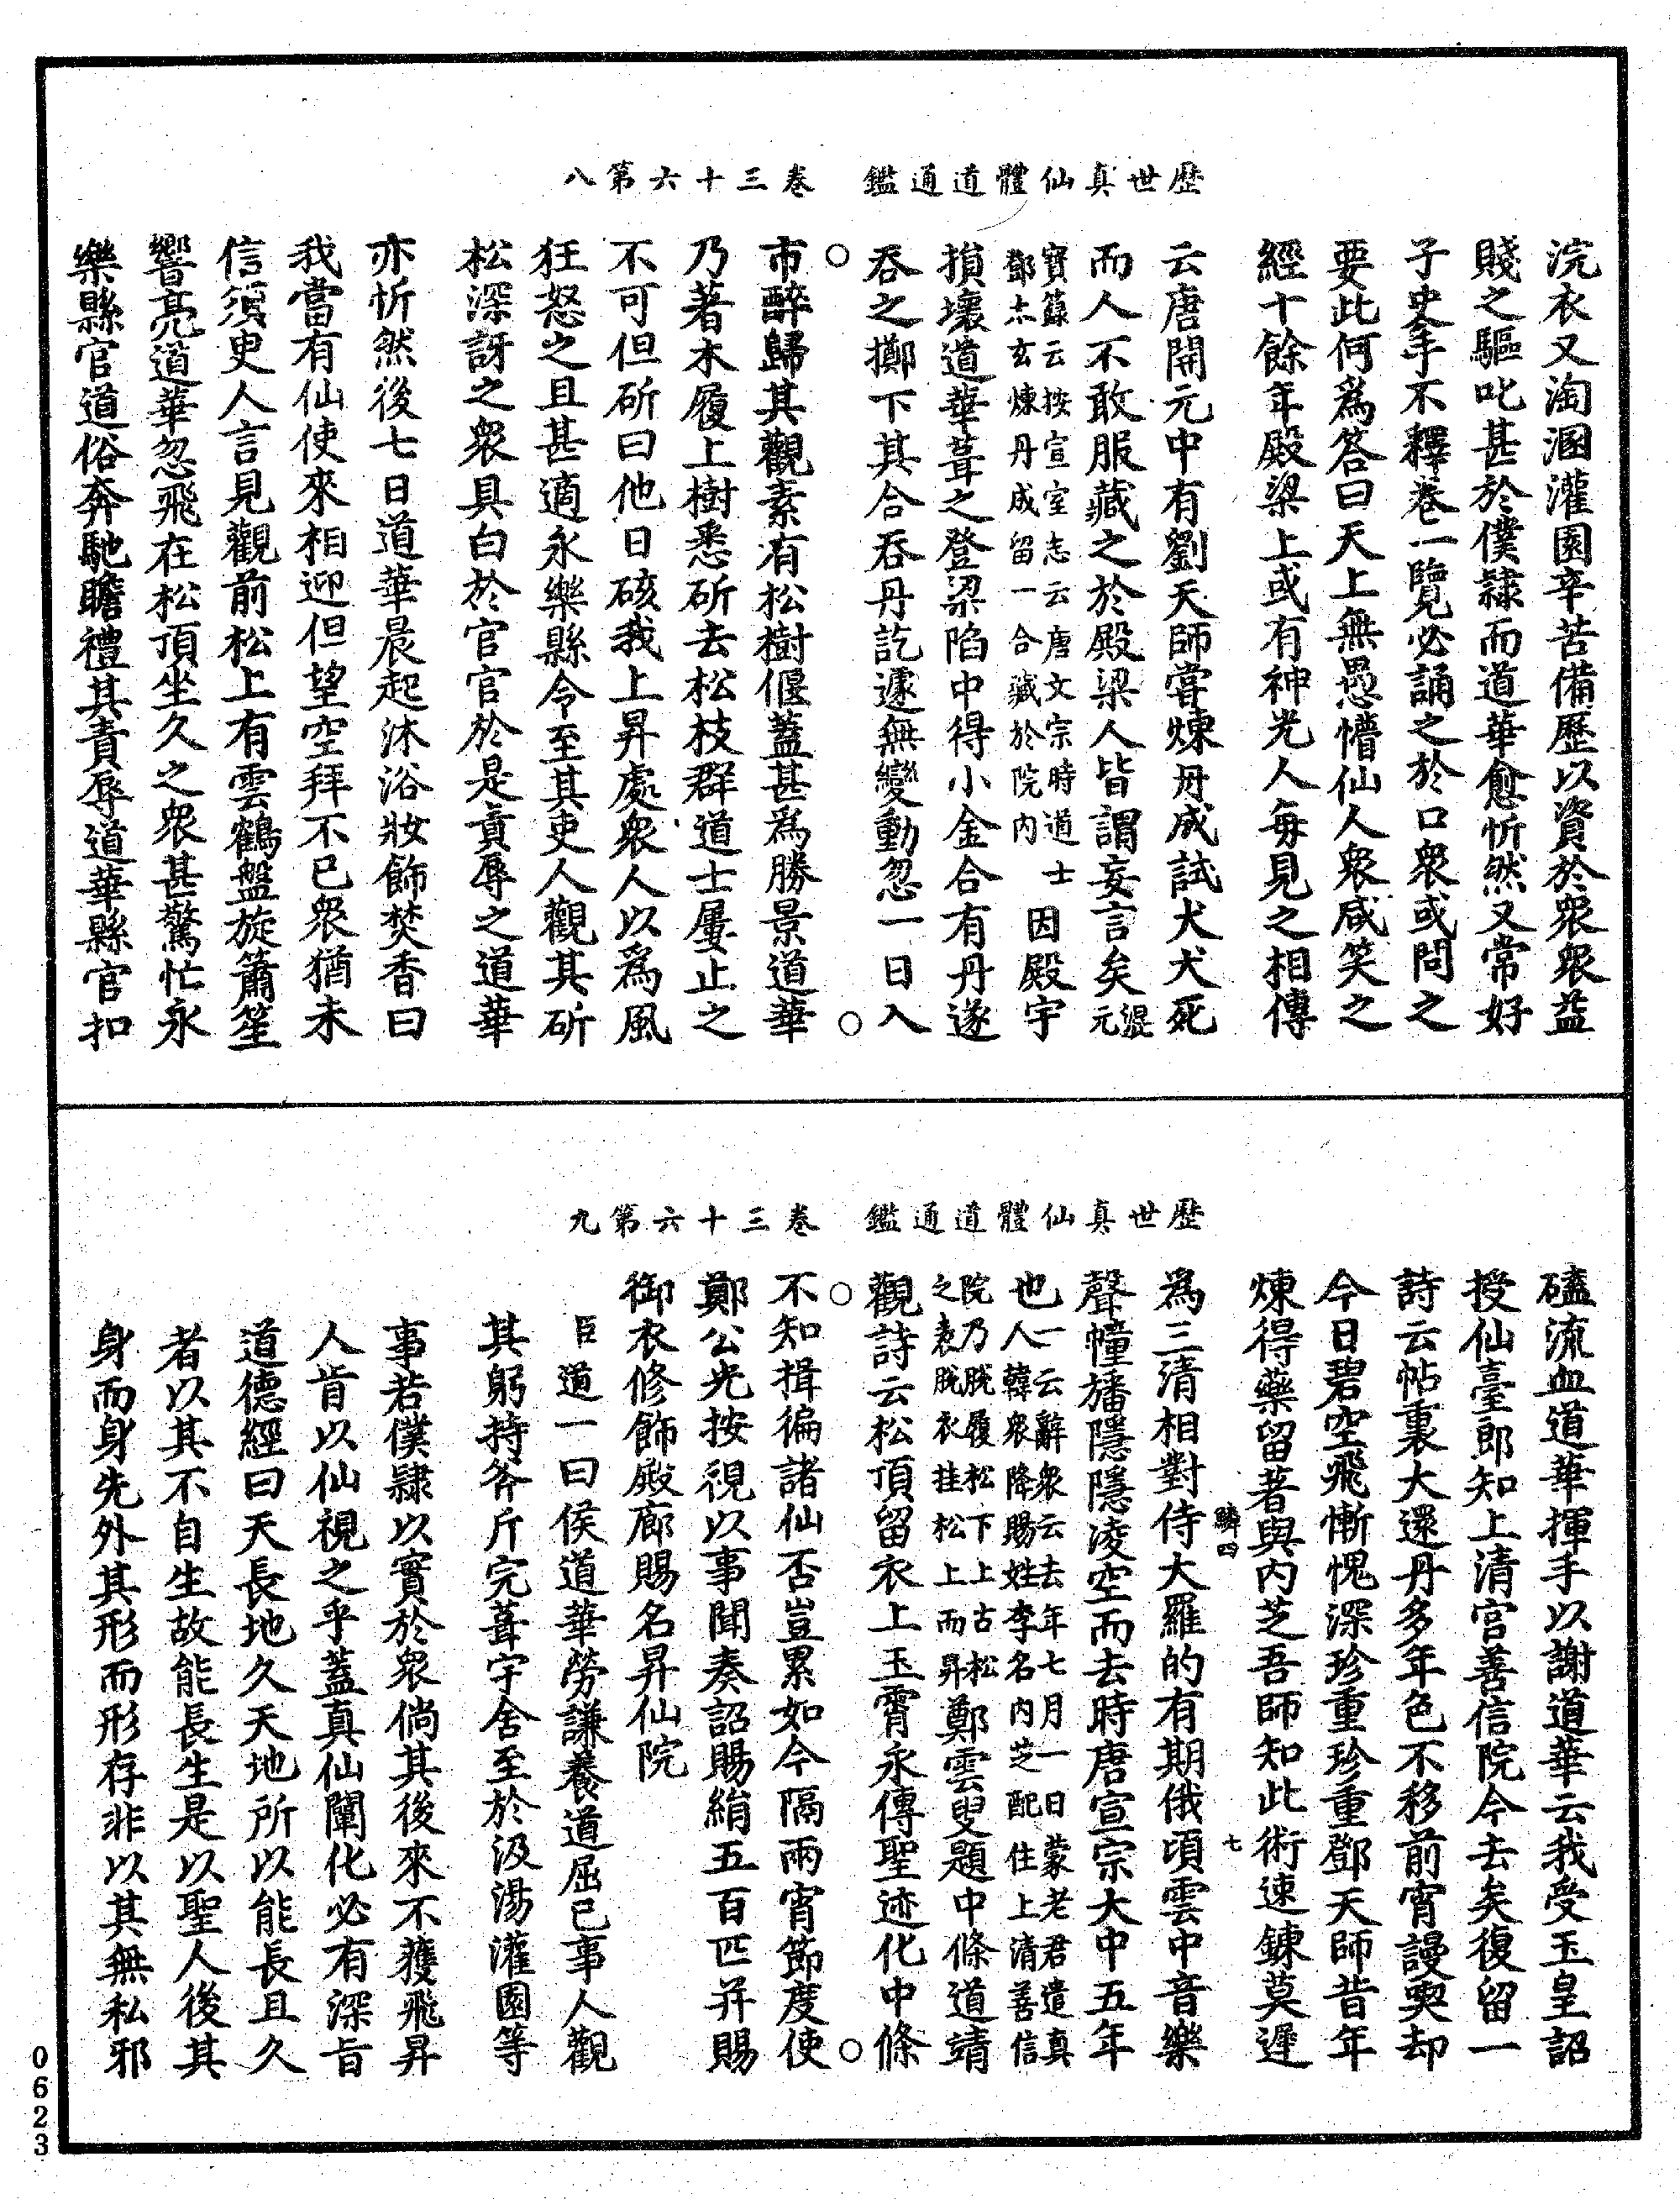 歷世真仙體道通鑑　卷三十六第八
浣衣又淘溷灌園辛苦備歷以資於衆衆益
賤之驅叱甚於僕隸而道華愈忻然又常好
子史手不釋卷一覽必誦之於口衆或問之
要此何爲答曰天上無愚懵仙人衆咸笑之
經十餘年殿梁上或有神光人每見之相傳
云唐開元中有劉天師嘗煉丹成試犬犬死
而人不敢服藏之於殿梁人皆謂妄言矣混元
寶籙云按宣室志云唐文宗時道士
鄧太玄煉丹成留一合藏於院内
因殿宇
損壞道華葺之登梁陷中得小金合有丹遂
吞之擲下其合吞丹訖遽無變動忽一日入
○
○
市醉歸其觀素有松樹偃蓋甚爲勝景道華
乃著木履上樹悉斫去松枝群道士屢止之
不可但斫曰他日硋我上昇處衆人以爲風
狂怒之且甚適永樂縣令至其吏人觀其斫
松深訝之衆具白於官官於是責辱之道華
亦忻然後七日道華晨起沐浴妝飾焚香曰
我當有仙使來相迎但望空拜不已衆猶未
信須臾人言見觀前松上有雲鶴盤旋簫笙
響亮道華忽飛在松頂坐久之衆甚驚忙永
樂縣官道俗奔馳瞻禮其責辱道華縣官扣
歷世真仙體道通鑑　卷三十六第九
磕流血道華揮手以謝道華云我受玉皇詔
授仙臺郎知上清宮善信院今去矣復留一
詩云帖裏大還丹多年色不移前宵謾喫却
今日碧空飛慚愧深珍重珍重鄧天師昔年
煉得藥留著與内芝吾師知此術速鍊莫遲
鱗四　七
爲三清相對侍大羅的有期俄頃雲中音樂
聲幢旛隱隱凌空而去時唐宣宗大中五年
也一云辭衆云去年七月一日蒙老君遣真
人韓衆降賜姓李名内芝配住上清善信
院乃脱履松下上古松
之表脱衣挂松上而昇
鄭雲叟題中條道靖
觀詩云松頂留衣上玉霄永傳聖迹化中條
○
○
不知揖徧諸仙否豈累如今隔兩宵節度使
鄭公光按視以事聞奏詔賜絹五百匹并賜
御衣修飾殿廊賜名昇仙院
臣道一曰侯道華勞謙養道屈己事人觀
其躬持斧斤完葺宇舍至於汲湯灌園等
事若僕隸以實於衆倘其後來不獲飛昇
人肯以仙視之乎蓋真仙闡化必有深旨
道德經曰天長地久天地所以能長且久
者以其不自生故能長生是以聖人後其
身而身先外其形而形存非以其無私邪
0623